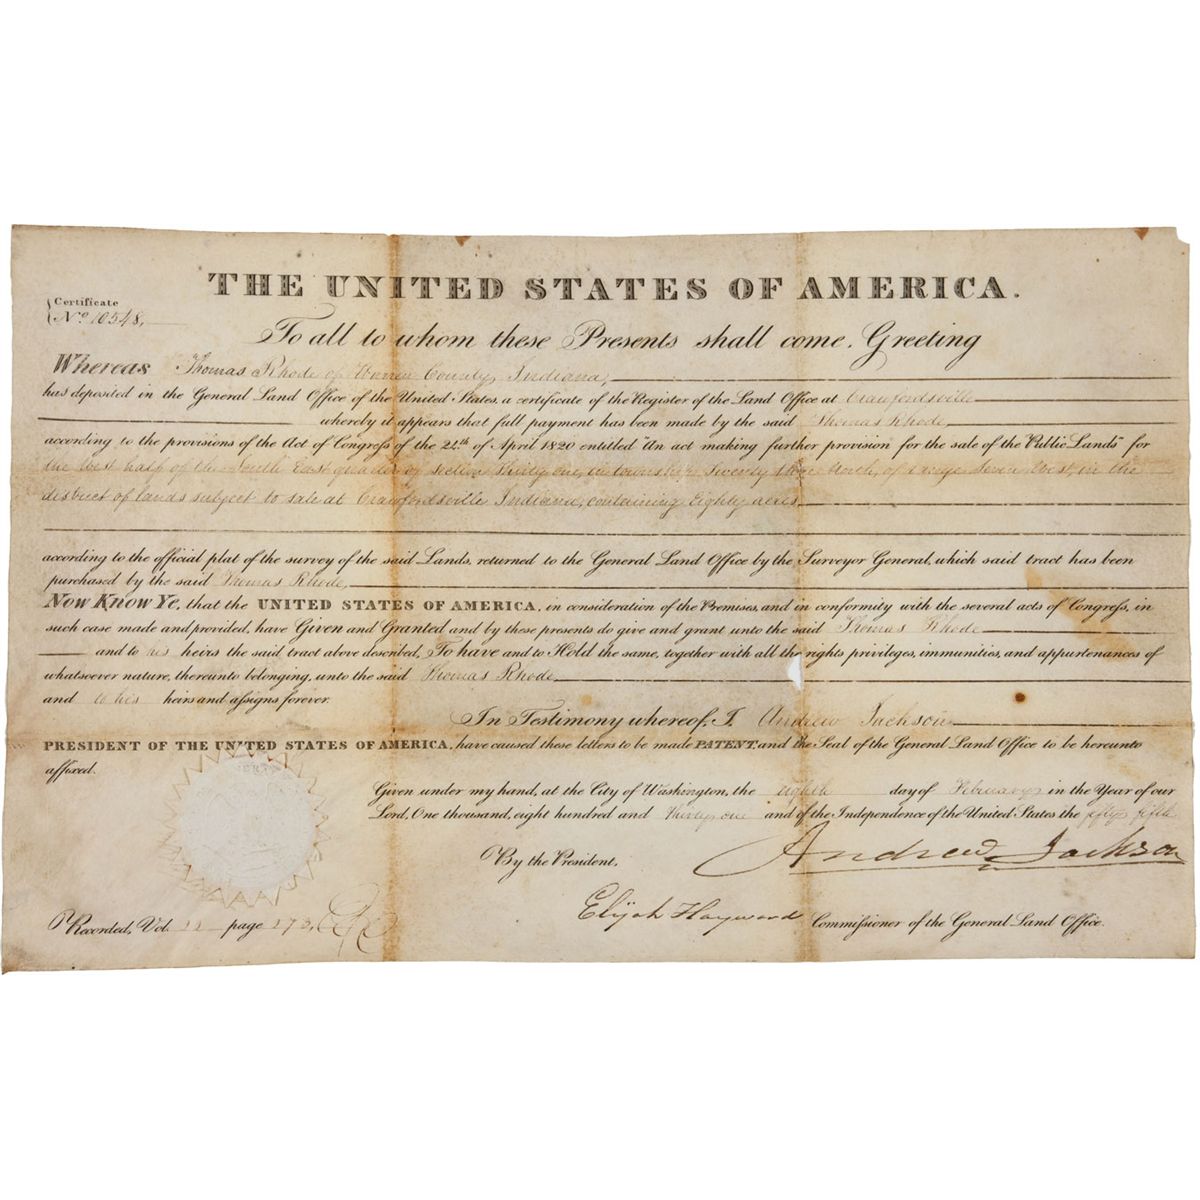 THE UNITED STATES OF AMERICA.
Certificate
No. 10548,
To all to whom these Presents shall come, Greeting
Whereas Thomas Rhode of Warren County, Indiana,
has deposited in the General Land Office of the United States, a certificate of the Register of the Land Office at Crawfordsville
whereby it appears that full payment has been made by the said Thomas Rhode
according to the provisions of the Act of Congress of the 24th of April 1820 entitled "An act making further provision for the sale of the Public Lands" for
the West half of the South East quarter of section thirty one, in township twenty three North, of range seven West, in the
district of lands subject to sale at Crawfordsville Indiana, containing Eighty acres
according to the official plat of the survey of the said Lands, returned to the General Land Office by the Surveyor General, which said tract has been
purchased by the said Thomas Rhode,
Now Know Ye, that the UNITED STATES OF AMERICA, in consideration of the Premises, and in conformity with the several acts of Congress, in
such case made and provided, have Given and Granted and by these presents do give and grant unto the said Thomas Rhode
and to his heirs the said tract above described, To have and to Hold the same, together with all the rights privileges, immunities, and appurtenances of
whatsoever nature, thereunto belonging, unto the said Thomas Rhode
and to his heirs and assigns forever.
In Testimony whereof, I, Andrew Jackson
PRESIDENT OF THE UNITED STATES OF AMERICA, have caused these letters to be made PATENT, and the Seal of the General Land Office to be hereunto
affixed.
Given under my hand, at the City of Washington, the eighth day of February in the Year of our
Lord, One thousand, eight hundred and thirty one and of the Independence of the United States the fifty fifth
By the President, Andrew Jackson
Elijah Hayward Commissioner of the General Land Office.
Recorded, Vol. page 273,